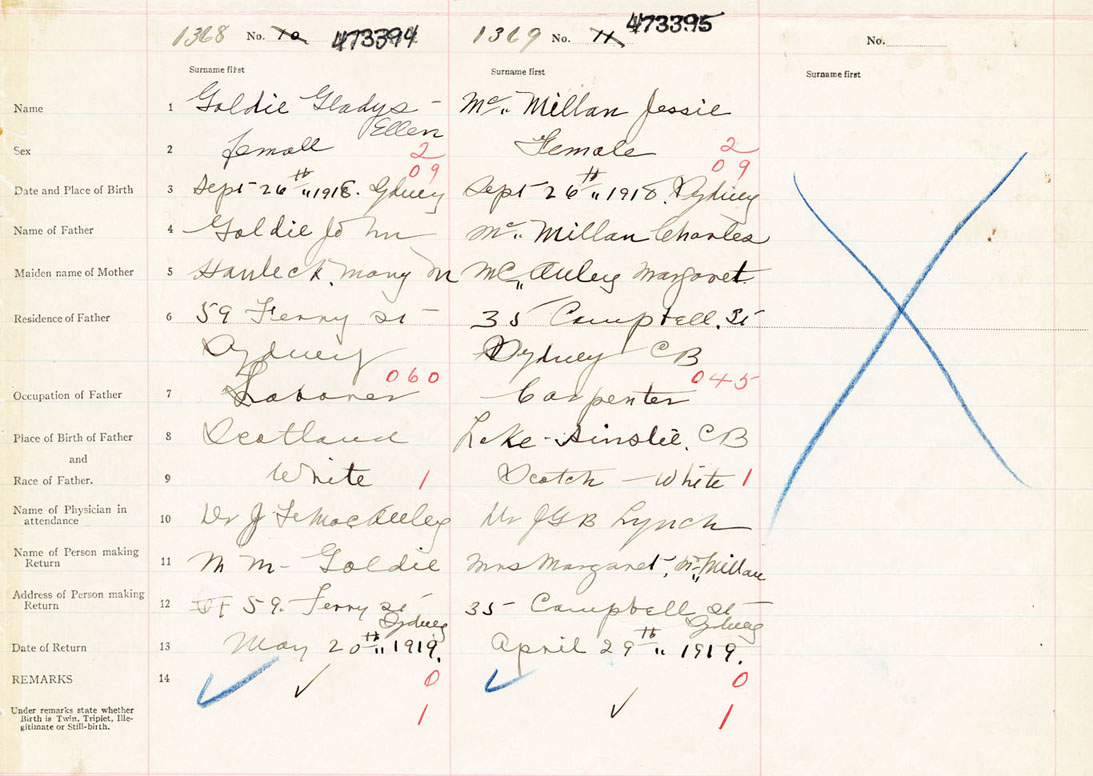 1368 No. 10 473394 1369 No. 11 473395 No.
Surname first Surname first Surname first
Name 1 Goldie Gladys - Mc Millan Jessie
Ellen
Sex 2 female 2 Female 2
09 09
Date and Place of Birth 3 Sept 26th 1918. Sydney Sept 26th 1918. Sydney
Name of Father 4 Goldie Mc Millan Charles
Maiden name of Mother 5 Mary M McAuley Margaret
Residence of Father 6 59 Ferry St 35 Campbell. St
Sydney Sydney CB
060 045
Occupation of Father 7 Laborer Carpenter
Place of Birth of Father 8 Scotland Lake-Ainslie. CB
and
Race of Father. 9 White 1 Scotch - White 1
Name of Physician in
attendance 10 Dr J Dr JGB Lynch
Name of Person making
Return 11 M M- Goldie Mrs Margaret, McMillan
Address of Person making
Return 12 59. Ferry St 35 Campbell St
Sydney Sydney
Date of Return 13 May 20th 1919. April 29th 1919.
REMARKS 14 ✓ ✓ 0 ✓ 0
Under remarks state whether
Birth is Twin, Triplet, Ille-
gitimate or Still-birth. 1 ✓ 1